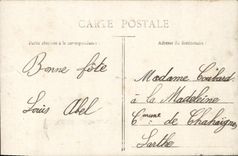 CARTE POSTALE
Partie réservée à la correspondance
Adresse du destinataire
Bonne fête
Louis Abel
Madame Coubard
à la Madeleine
Cmune de Chahaignes
Sarthe